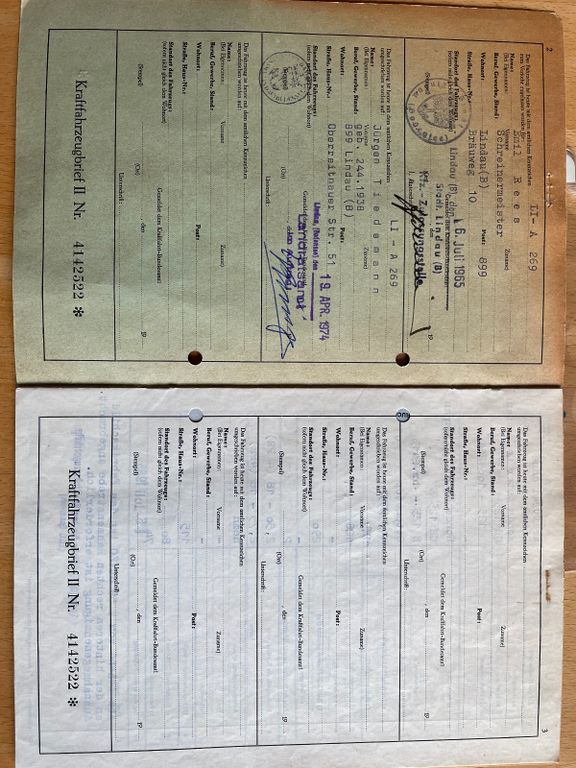 2
Das Fahrzeug ist heute mit dem amtlichen Kennzeichen LI-A 269
Name: Emil Rees
(Bei Eigennamen: Vorname Zuname)
Beruf, Gewerbe, Stand: Schreinermeister
Wohnort: Lindau(B) Post: 899
Straße, Haus-Nr.: Bräuweg 10
Standort des Fahrzeugs:
(sofern nicht gleich dem Wohnort)
Lindau (B), den 16. Juli 1965
Stadt Lindau (B)
Kfz.-Zulassungsstelle
Das Fahrzeug ist heute mit dem amtlichen Kennzeichen LI - A 269
umgeschrieben worden auf:
Name: Jürgen Tiedemann
(Bei Eigennamen: Vorname Zuname)
Beruf, Gewerbe, Stand: geb. 244.1938
Wohnort: 899 Lindau (B) Post:
Straße, Haus-Nr.: Oberreitnauer Str. 51
Standort des Fahrzeugs:
(sofern nicht gleich dem Wohnort)
Lindau (Bodensee) den 19. APR. 1974
Landratsamt
(Stempel) (Ort)
Unterschrift:
Das Fahrzeug ist heute mit dem amtlichen Kennzeichen
umgeschrieben worden auf:
Name:
(Bei Eigennamen: Vorname Zuname)
Beruf, Gewerbe, Stand:
Wohnort: Post:
Straße, Haus-Nr.:
Standort des Fahrzeugs:
(sofern nicht gleich dem Wohnort) Gemeldet dem Kraftfahrt-Bundesamt!
(Stempel) (Ort) , den 19
Unterschrift:
Kraftfahrzeugbrief II Nr. 4142522 *
3
Das Fahrzeug ist heute mit dem amtlichen Kennzeichen
umgeschrieben worden auf:
Name:
(Bei Eigennamen: Vorname Zuname)
Beruf, Gewerbe, Stand:
Wohnort: Post:
Straße, Haus-Nr.:
Standort des Fahrzeugs:
(sofern nicht gleich dem Wohnort) Gemeldet dem Kraftfahrt-Bundesamt!
(Stempel) (Ort) , den 19
Unterschrift:
Das Fahrzeug ist heute mit dem amtlichen Kennzeichen
umgeschrieben worden auf:
Name:
(Bei Eigennamen: Vorname Zuname)
Beruf, Gewerbe, Stand:
Wohnort: Post:
Straße, Haus-Nr.:
Standort des Fahrzeugs:
(sofern nicht gleich dem Wohnort) Gemeldet dem Kraftfahrt-Bundesamt!
(Stempel) (Ort) , den 19
Unterschrift:
Das Fahrzeug ist heute mit dem amtlichen Kennzeichen
umgeschrieben worden auf:
Name:
(Bei Eigennamen: Vorname Zuname)
Beruf, Gewerbe, Stand:
Wohnort: Post:
Straße, Haus-Nr.:
Standort des Fahrzeugs:
(sofern nicht gleich dem Wohnort) Gemeldet dem Kraftfahrt-Bundesamt!
(Stempel) (Ort) , den 19
Unterschrift:
Kraftfahrzeugbrief II Nr. 4142522 *